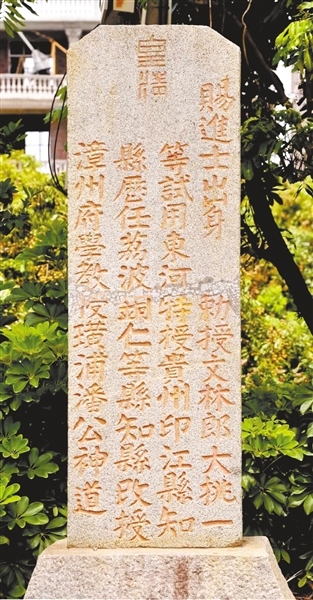 皇清
賜進士出身 勅授文林郎大挑一
等試用東河特授貴州印江縣知
縣歷任荔波銅仁等縣知縣改授
漳州府學教授璜浦潘公神道